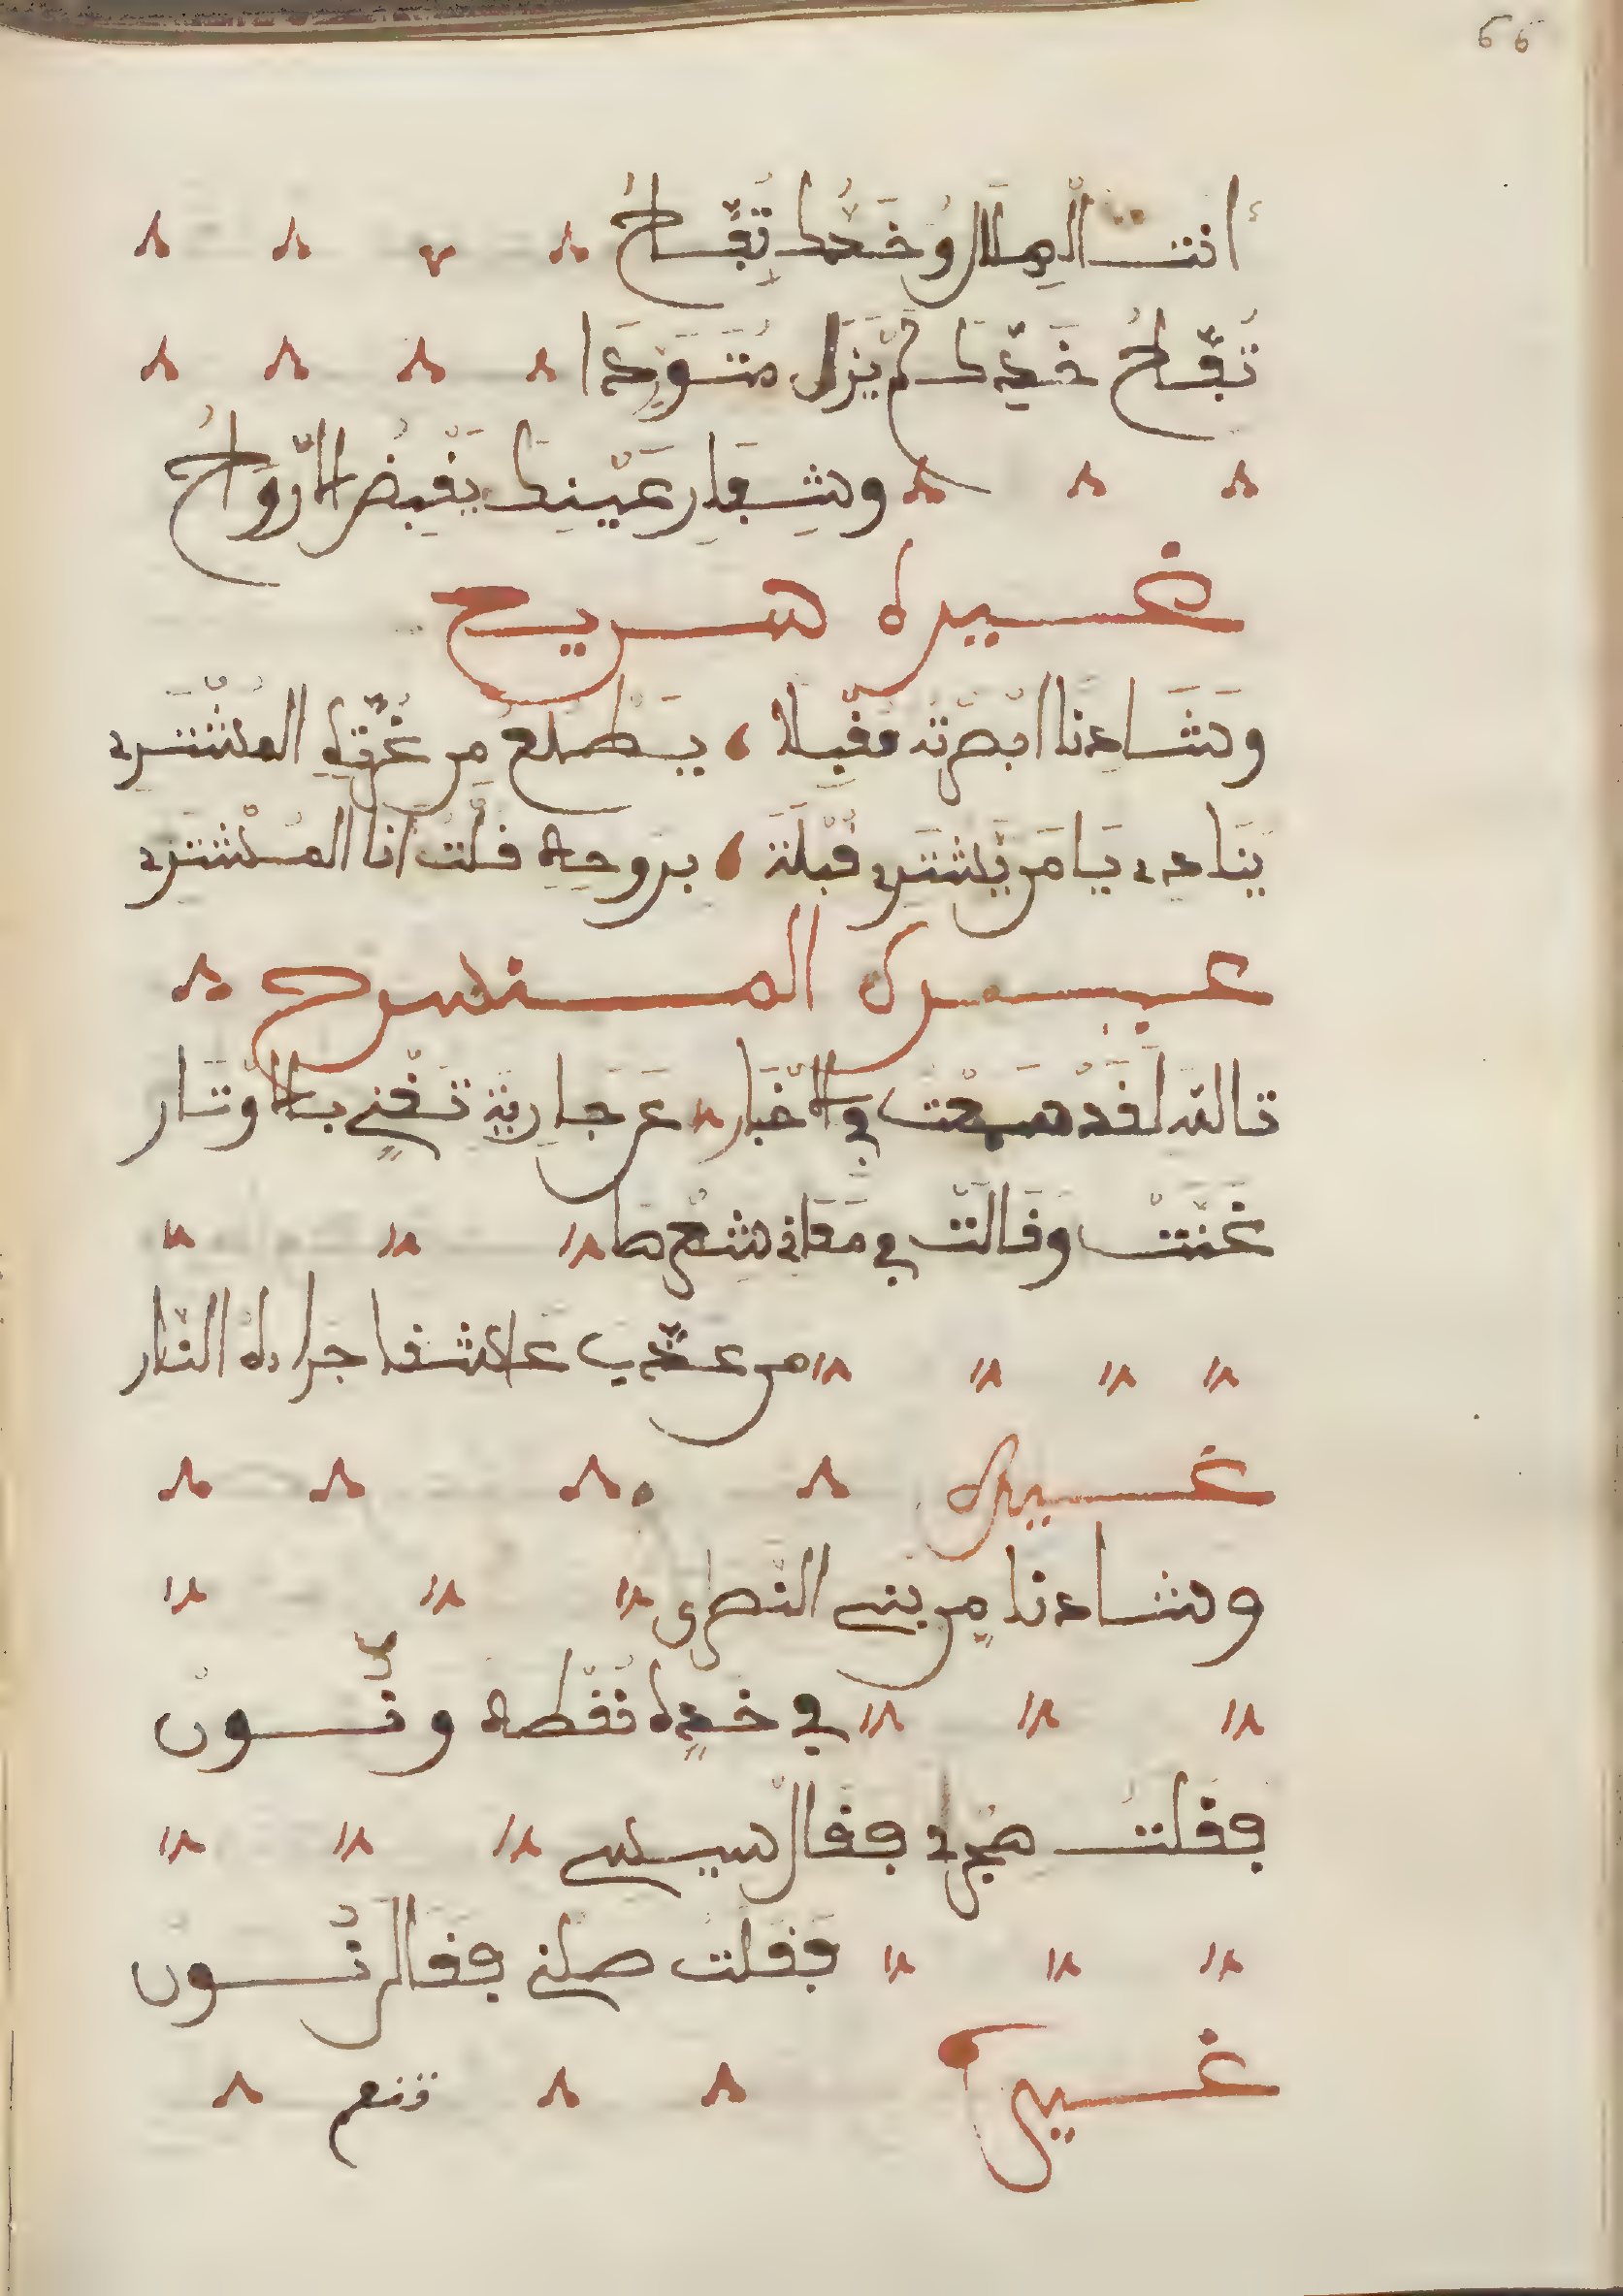 66
أنت الْهِلالُ وخَدُّك تُفَّاحُ
تُفَّاحُ خَدِّك لم يَزَل مُتَوَرِدَا
وشِفَارِ عَيْنِكَ يَقْبِضُ الارْوَاحُ
غيره سريح
وَشَادِنا ابْصَرْته مقْبلا يَطْلع مِن غُرّتِهِ المُشْتَرِي
يُنَادِي يَا مَن يَشْتَرِي قُبْلَة بروحِهِ قلْتُ انا المُشْتَرِي
غيره المنسرح
تالله لَقَدْ سَمِعْت في الاخْبَار عَن جَارِيَة تَغْنِي بالاوْتَار
غَنَّتْ وَقَالَتْ في مَعَانِي شِعْرِهَا
من عذّب عاشقا جزاه النّار
غيره
وشادنا مِن بني النصرى
في خدِه نُقْطه ونُّون
فقَلتُ هجرى فقال سيسى
فقلت صلنى فقال نُون
غيره
تنعم